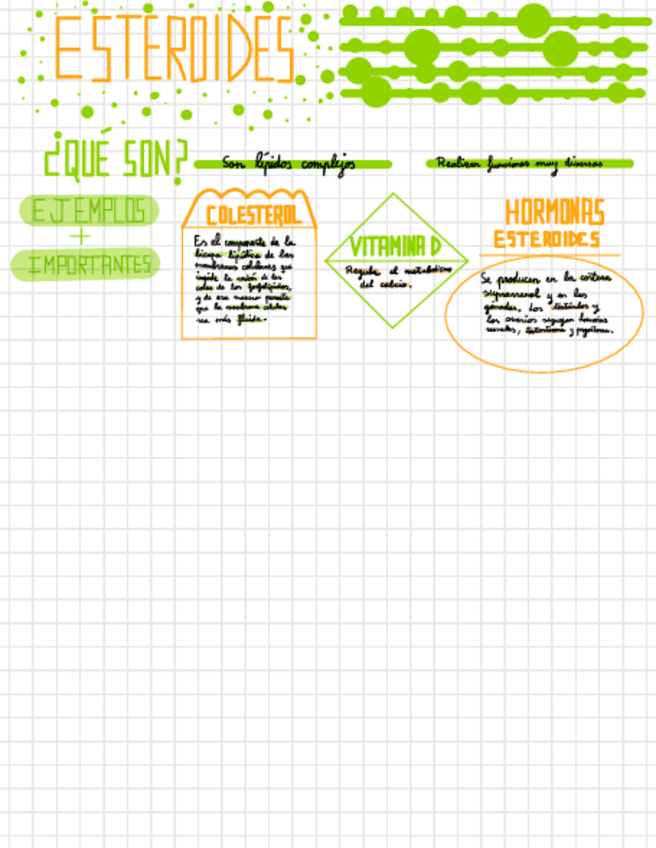 ESTEROIDES
¿QUÉ SON?
Son lípidos complejos
Realizan funciones muy diversas
EJEMPLOS
+
IMPORTANTES
COLESTEROL
Es el componente de la
bicapa lipídica de las
membranas celulares que
impide la unión de las
colas de los fosfolípidos,
y de esa manera permite
que la membrana celular
sea más fluida.
VITAMINA D
Regula el metabolismo
del calcio.
HORMONAS
ESTEROIDES
Se producen en la corteza
suprarrenal y en las
gónadas. Los testículos y
los ovarios segregan hormonas
sexuales, testosterona y progesterona.